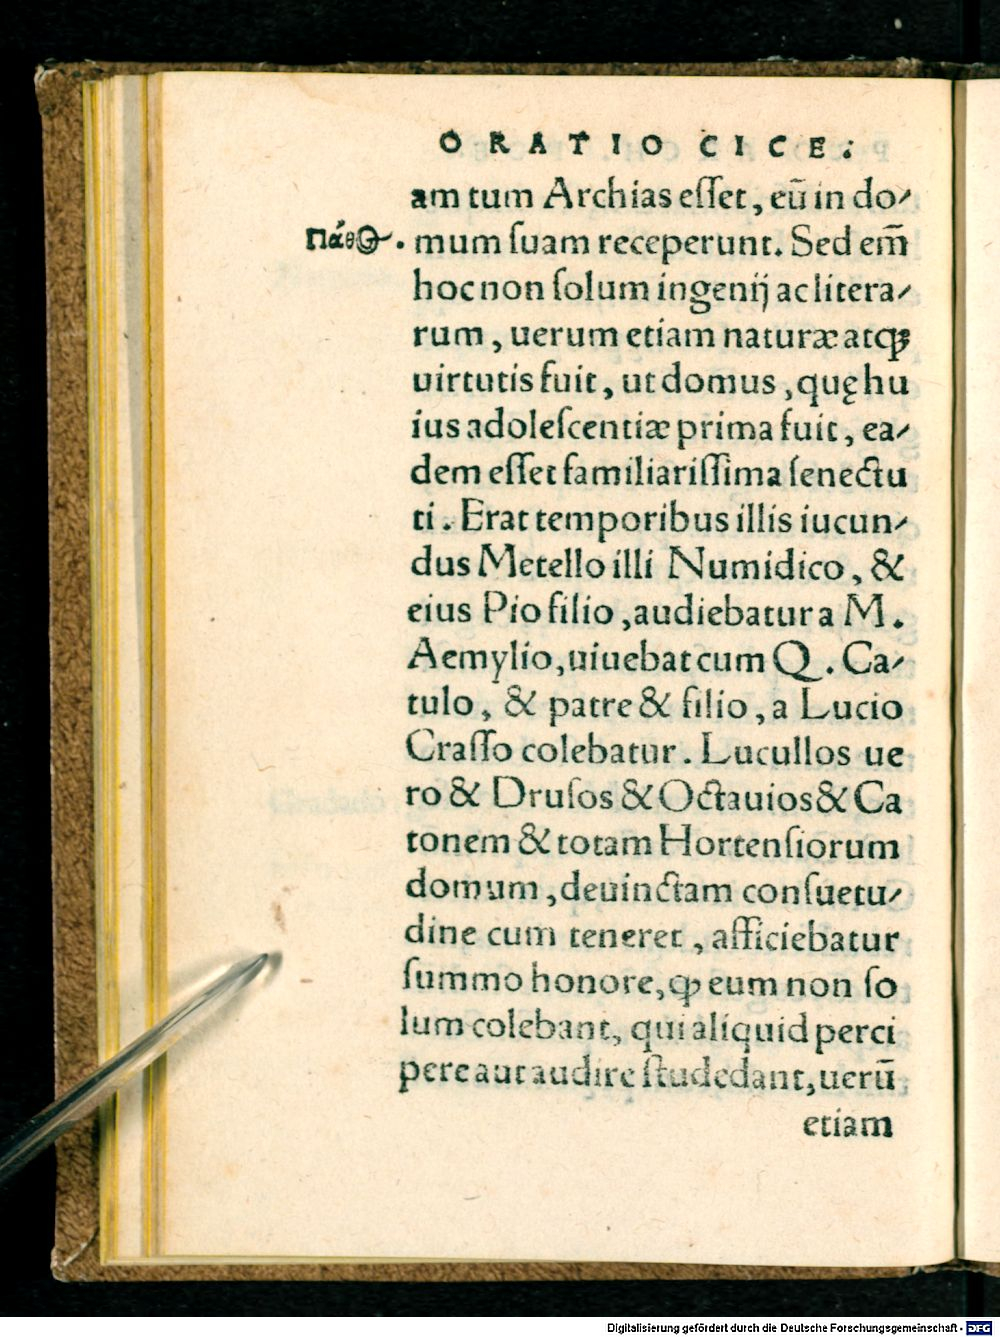 ORATIO CICE.
am tum Archias eſſet, eū in do⸗
Πάθος.
mum ſuam receperunt. Sed em̄
hoc non ſolum ingenij ac litera⸗
rum, uerum etiam naturæ atqꝫ
uirtutis fuit, ut domus, quę hu
ius adoleſcentiæ prima fuit, ea⸗
dem eſſet familiariſſima ſenectu
ti. Erat temporibus illis iucun⸗
dus Metello illi Numidico, &
eius Pio filio, audiebatur a M.
Aemylio, uiuebat cum Q. Ca⸗
tulo, & patre & filio, a Lucio
Craſſo colebatur. Lucullos ue
ro & Druſos & Octauios & Ca
tonem & totam Hortenſiorum
domum, deuinctam conſuetu⸗
dine cum teneret, afficiebatur
ſummo honore, ꝙ eum non ſo
lum colebant, qui aliquid perci
pere aut audire ſtudedant, uerū
etiam
Digitalisierung gefördert durch die Deutsche Forschungsgemeinschaft - DFG